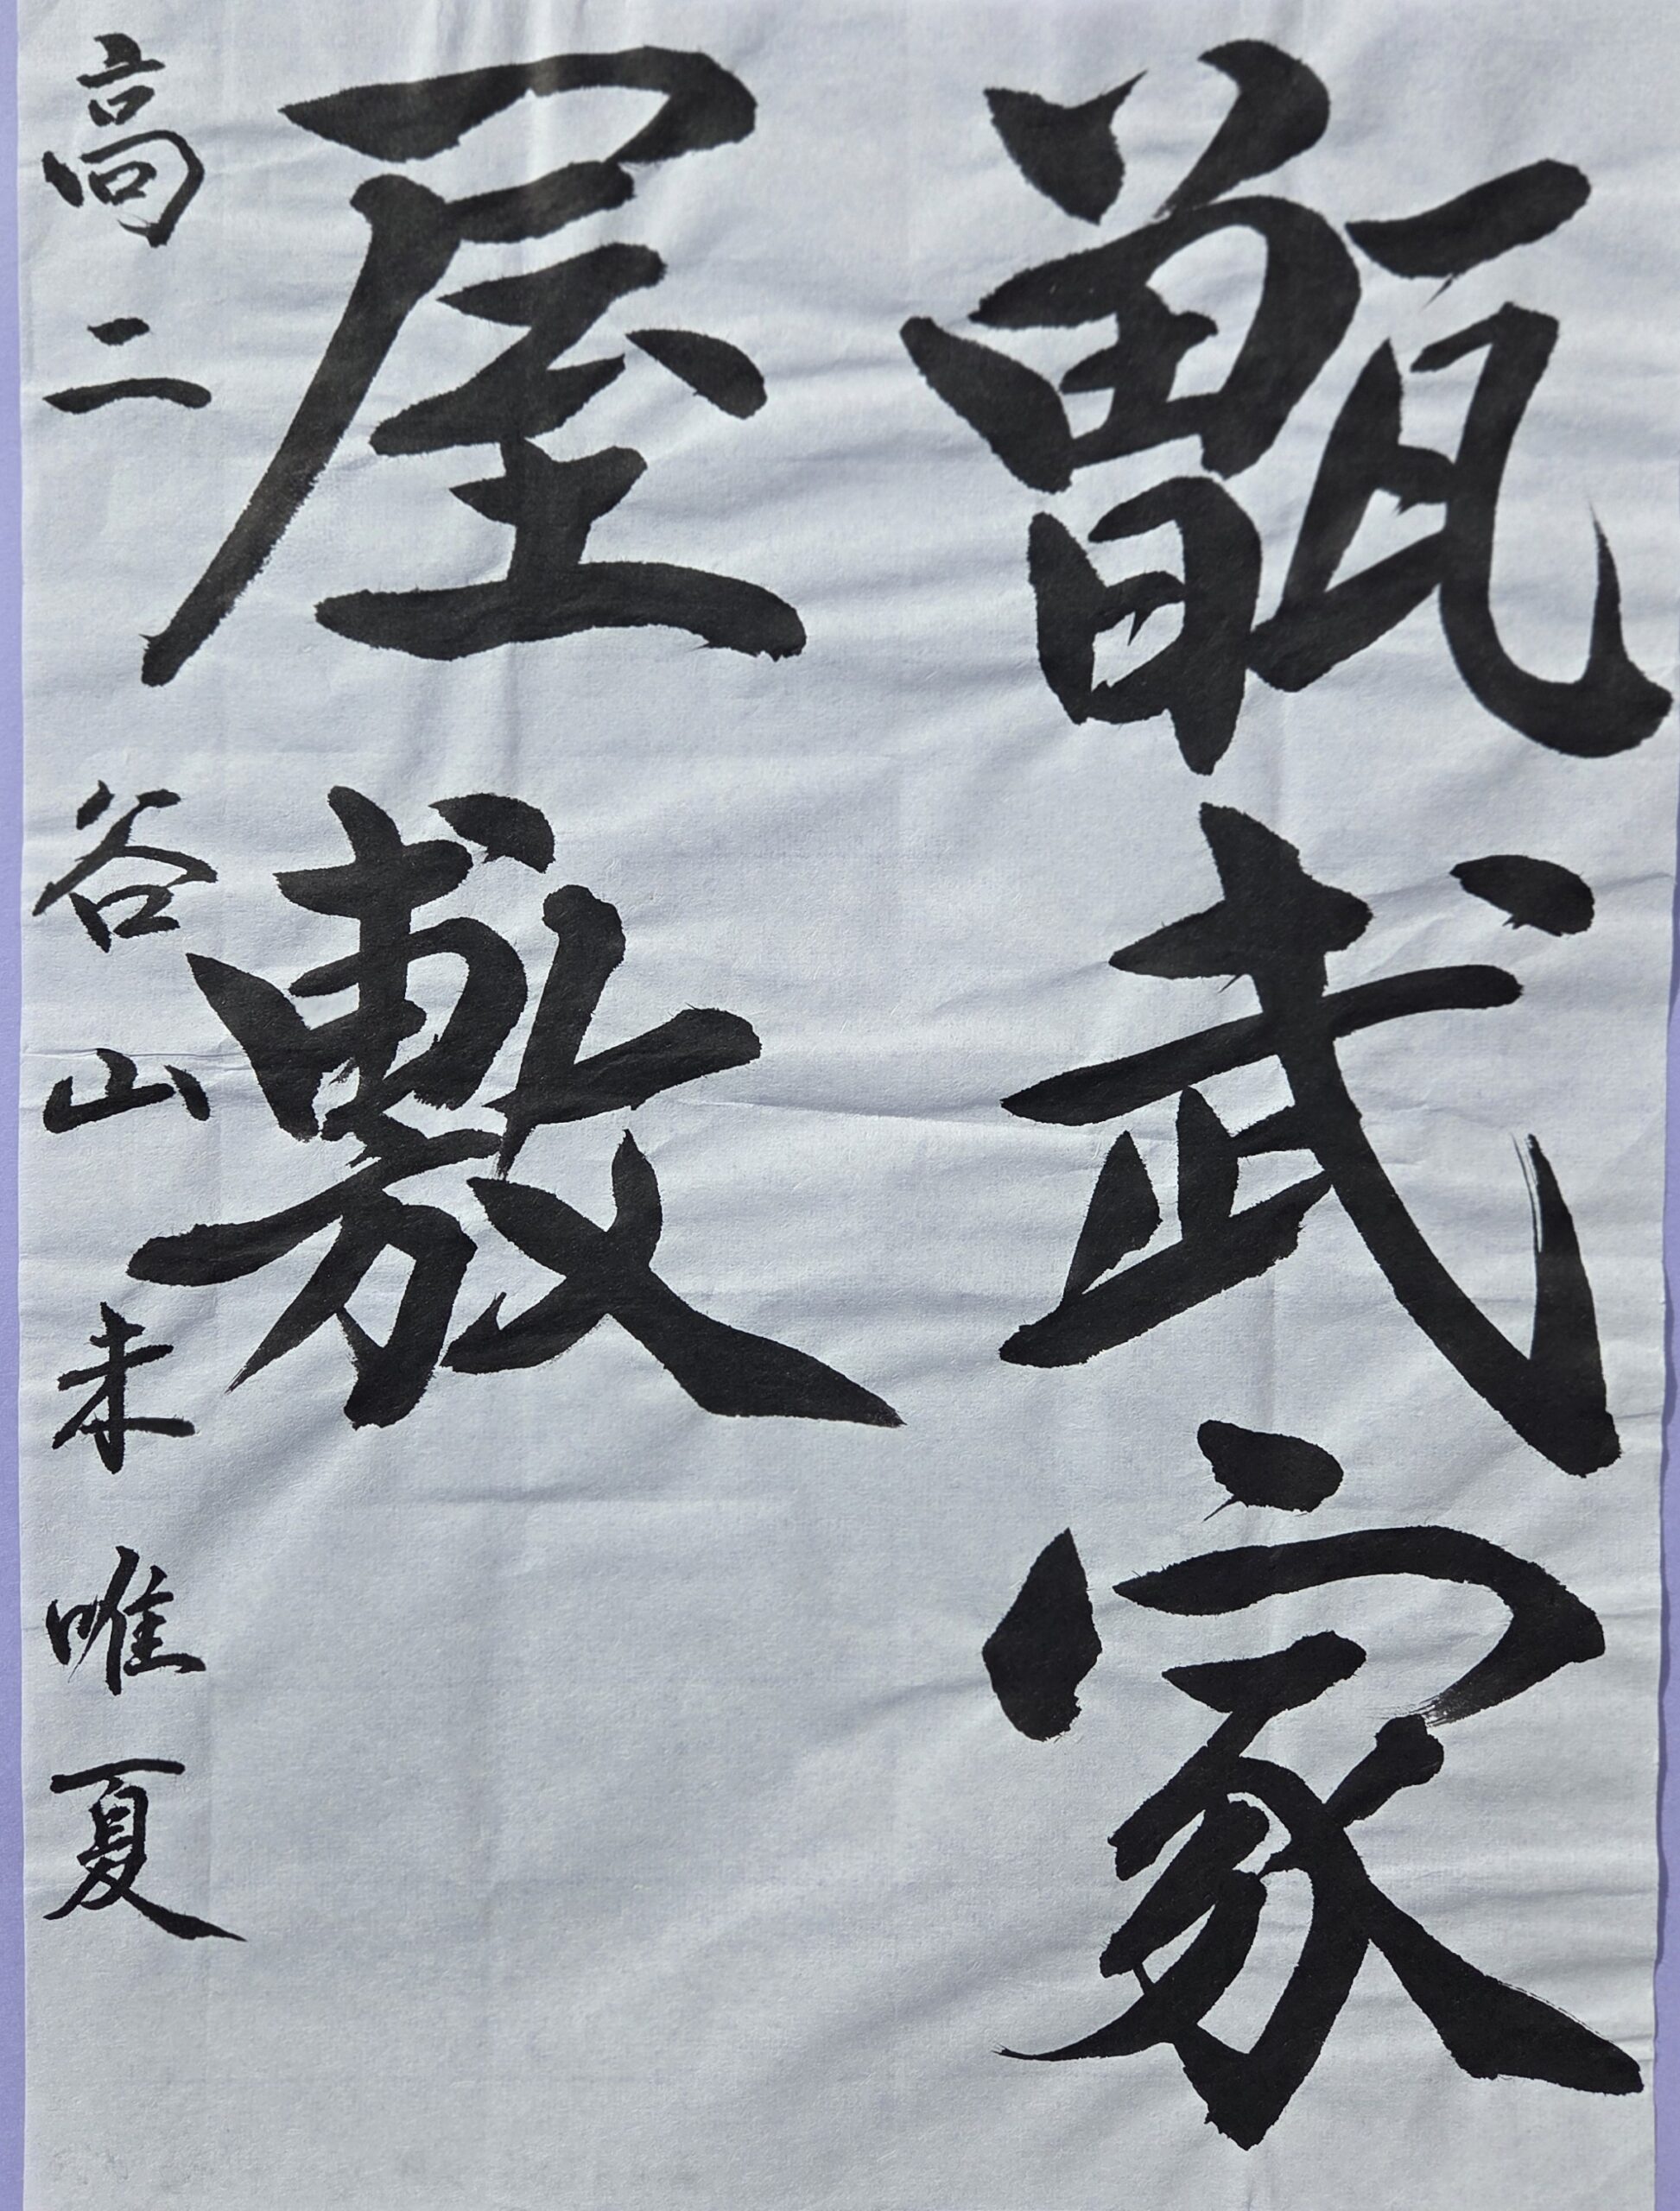 甑武家
屋敷
高二 谷山未唯夏